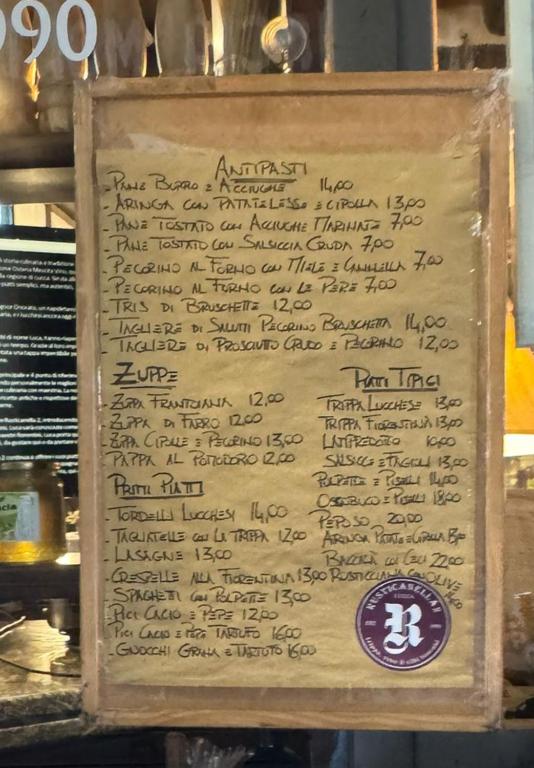 990
ANTIPASTI
- PANE BURRO E ACCIUGHE 14,00
- ARINGA CON PATATE LESSE E CIPOLLA 13,00
- PANE TOSTATO CON ACCIUGHE MARINATE 7,00
- PANE TOSTATO CON SALSICCIA CRUDA 7,00
- PECORINO AL FORNO CON MIELE E CANNELLA 7,00
- PECORINO AL FORNO CON LE PERE 7,00
- TRIS DI BRUSCHETTE 12,00
- TAGLIERE DI SALUMI PECORINO BRUSCHETTA 14,00
- TAGLIERE DI PROSCIUTTO CRUDO E PECORINO 12,00
ZUPPE
- ZUPPA FRANTOIANA 12,00
- ZUPPA DI FARRO 12,00
- ZUPPA CIPOLLE E PECORINO 13,00
- PAPPA AL POMODORO 12,00
PRIMI PIATTI
- TORDELLI LUCCHESI 14,00
- TAGLIATELLE CON LA TRIPPA 12,00
- LASAGNE 13,00
- CRESPELLE ALLA FIORENTINA 13,00
- SPAGHETTI CON POLPETTE 13,00
- PICI CACIO E PEPE 12,00
- PICI CACIO E PEPE TARTUFO 16,00
- GNOCCHI GRANA E TARTUFO 16,00
PIATTI TIPICI
TRIPPA LUCCHESE 13,00
TRIPPA FIORENTINA 13,00
LAMPREDOTTO 10,00
SALSICCE E FAGIOLI 13,00
POLPETTE E PISELLI 14,00
OSSOBUCO E PISELLI 18,00
PEPOSO 20,00
ARINGA PATATE E CIPOLLA
BACCALÀ CON CECI 22,00
ROSTICCIANA CON OLIVE
RUSTICANELLA2
LUCCA
R